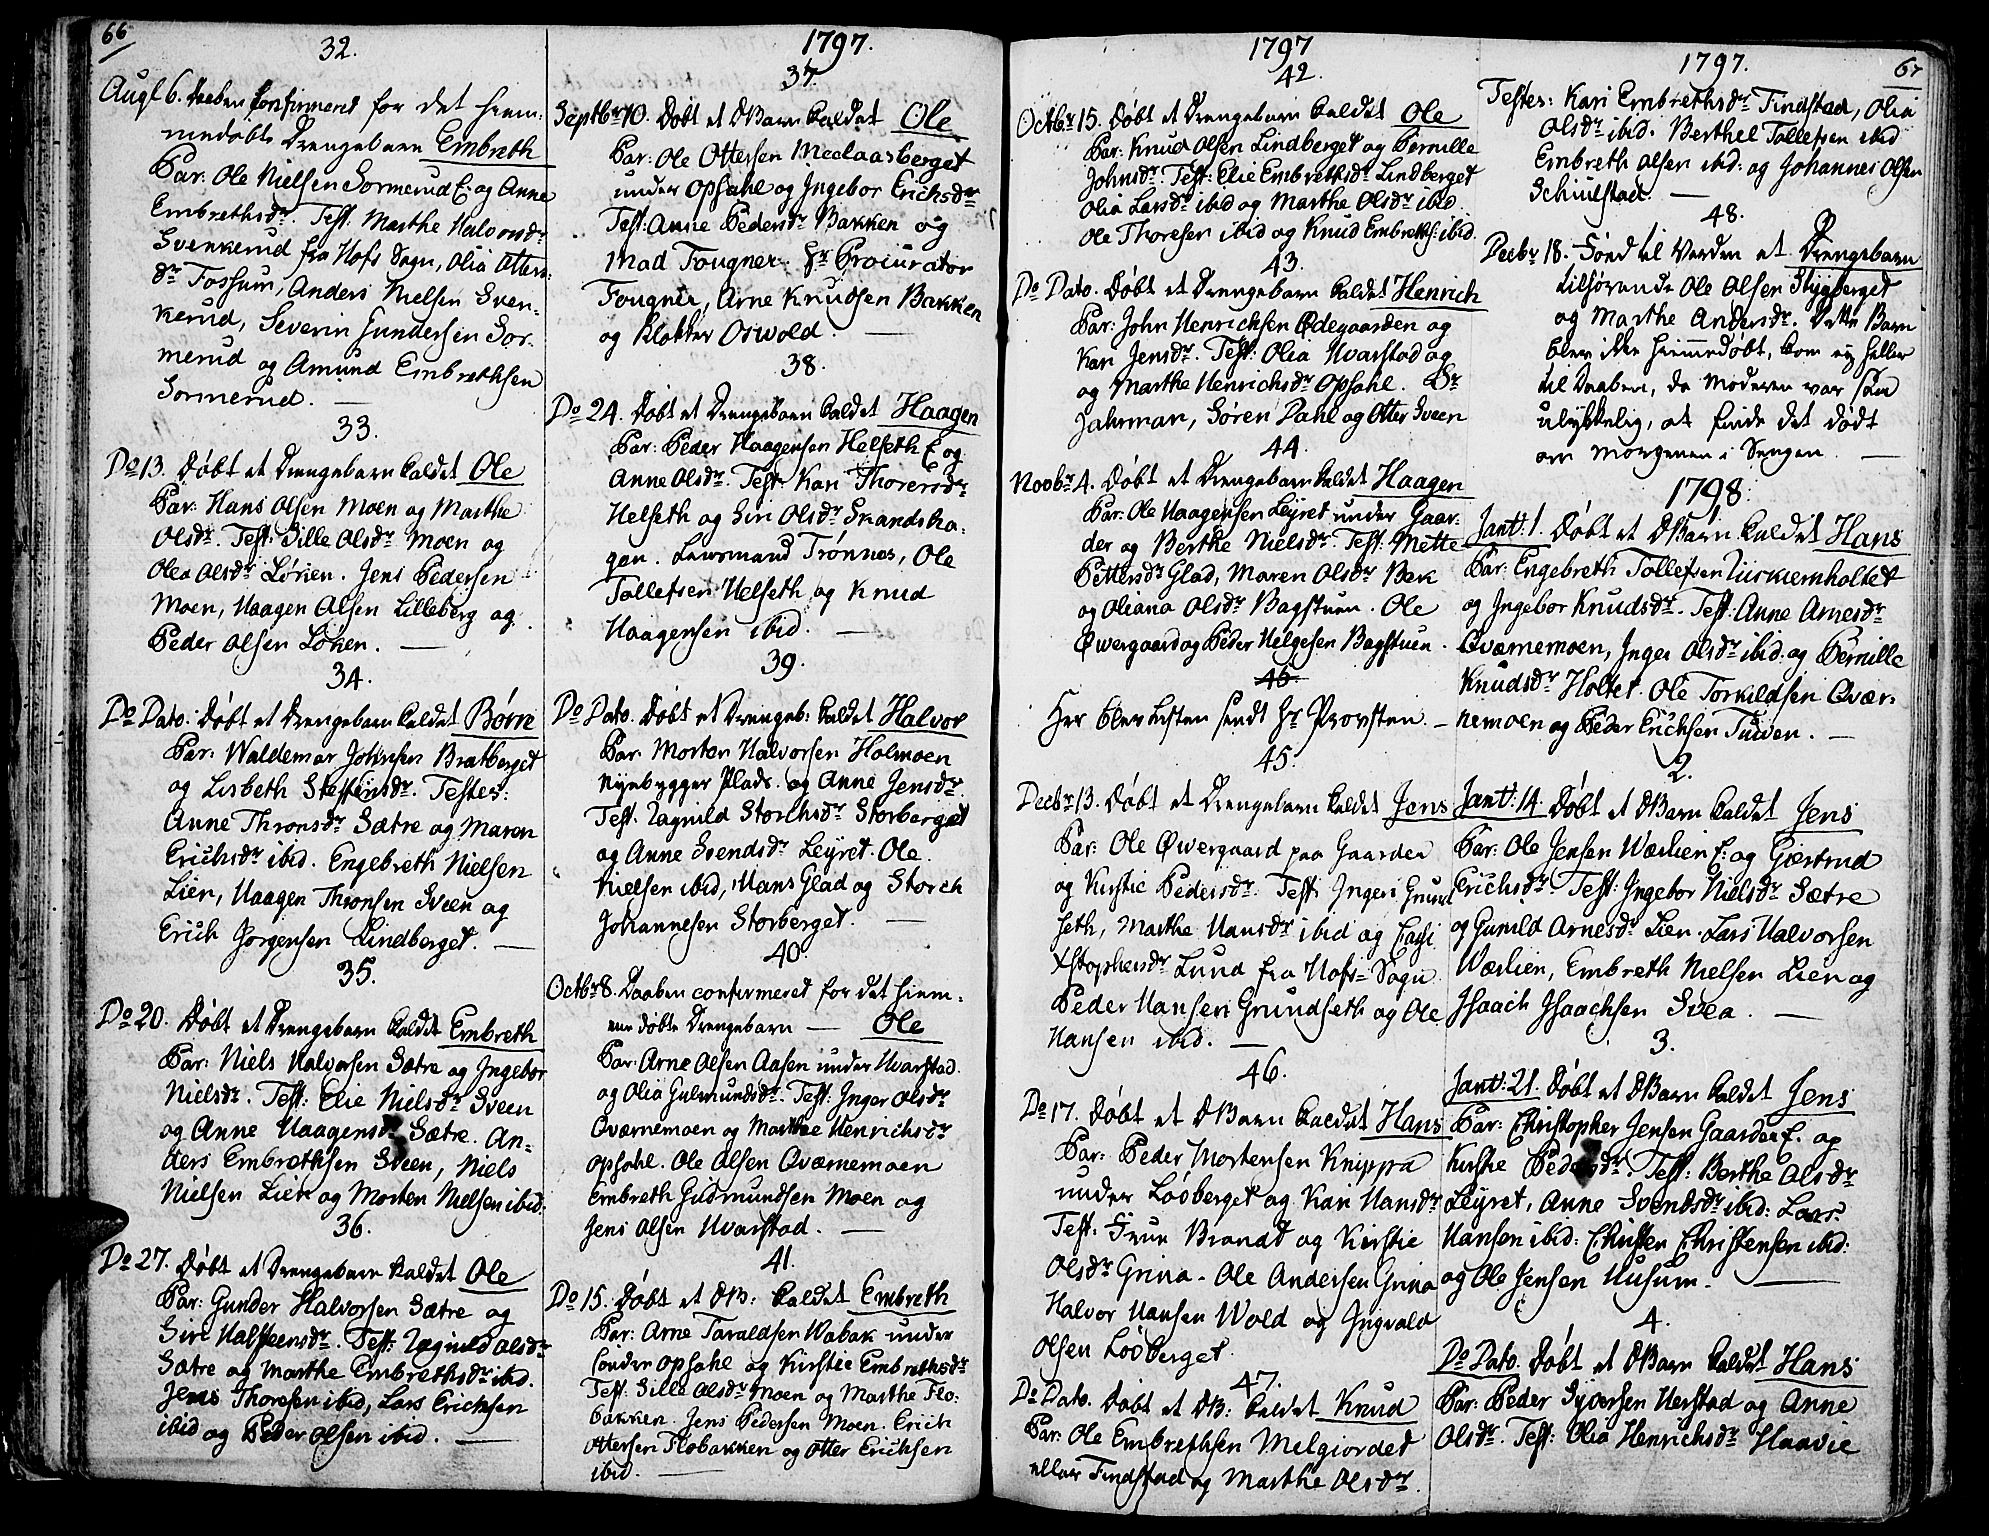 66
32.
Augst 6. Daaben Confirmeret for det hiem-
medøbte Drengebarn Embreth
Par: Ole Nielsen Sormerud E: og Anne
Embrethsdr. Test. Marthe Halvorsdr
Svenkerud fra Hofs Sogn, Olia Otters-
dr Fossum, Anders Nielsen Sven-
kerud, Severin Gundersen Sor-
merud og Amund Embrethsen
Sormerud.
33.
Do 13. Døbt et Drengebarn kaldet Ole
Par: Hans Olsen Moen og Marthe
Olsdr. Test: Sille Olsdr Moen og
Olea Olsdr Løken. Jens Pedersen
Moen, Haagen Olsen Lilleberg og
Peder Olsen Løken.
34.
Do Dato. Døbt et Drengebarn kaldet Børre
Par: Waldemar Johnsen Bratberget
og Lisbeth Steffensdr. Testes:
Anne Thronsdr Sætre og Maren
Erichsdr ibid. Engebreth Nielsen
Lien, Haagen Thronsen Sveen og
Erich Jørgensen Lindberget.
35.
Do 20. Døbt et Drengebarn kaldet Embreth
Par: Niels Halvorsen Sætre og Ingebor
Nielsdr. Test: Elie Nielsdr Sveen
og Anne Haagensdr Sætre. An-
ders Embrethsen Sveen, Niels
Nielsen Lien og Morten Nielsen ibid:
36.
Do 27. Døbt et Drengebarn kaldet Ole
Par: Gunder Halvorsen Sætre og
Siri Halsteensdr. Test: Ragnild Olsdr
Sætre og Marthe Embrethsdr ibid.
Jens Thoresen ibid, Lars Erichsen
ibid og Peder Olsen ibid.
1797.
37.
Septbr 10. Døbt et DBarn kaldet Ole
Par: Ole Ottersen Meelaasberget
under Opsahl og Ingebor Erichsdr
Test: Anne Pedersdr Bakken og
Mad Fougner. Hr Procurator
Fougner, Arne Knudsen Bakken
og Klokker Oswold.
38.
Do 24. Døbt et Drengebarn kaldet Haagen
Par: Peder Haagensen Helseth E og
Anne Olsdr. Test. Kari Thoresdr
Helseth og Siri Olsdr Skandsha-
gen. Lensmand Trønnes, Ole
Tollefsen Helseth og Knud
Haagensen ibid.
39.
Do Dato. Døbt et Drengeb: kaldet Halvor
Par: Morten Halvorsen Holmoen
Nyebygger Plads. og Anne Jensdr
Test. Ragnild Storchsdr Storberget
og Anne Svendsdr Leyret. Ole
Nielsen ibid, Hans Glad og Storch
Johannesen Storberget.
40.
Octbr 8. Daaben confirmeret for det hiem-
me døbte Drengebarn — Ole
Par: Arne Olsen Aasen under Hvarstad
og Olia Gulmundsdr. Test: Inger Olsdr
Qværnemoen og Marthe Henrichsdr
Opsahl. Ole Olsen Qværnemoen
Embreth Gudmundsen Moen og
Jens Olsen Hvarstad.
41.
Do 15. Døbt et DB: kaldet Embreth
Par: Arne Taraldsen Wabak under
Sønder Opsahl og Kirstie Embrethsdr
Test: Sille Olsdr Moen og Marthe Flo-
bakken. Jens Pedersen Moen. Erich
Ottersen Flobakken og Otter Erichsen
ibid.
1797
42.
Octbr 15. Døbt et Drengebarn kaldet Ole
Par: Knud Olsen Lindberget og Pernille
Johnsdr. Test: Elie Embrethsdr Lindberget
Olia Larsdr ibid og Marthe Olsdr ibid.
Ole Thoresen ibid og Knud Embreths: ibid.
43.
Do Dato. Døbt et Drengebarn kaldet Henrich
Par: John Henrichsen Ødegaarden og
Kari Jensdr. Test: Olia Hvarstad og
og Marthe Henrichsdr Opsahl. Sr
Jahrman, Søren Dahl og Otter Sveen
44.
Novbr 4. Døbt et Drengebarn kaldet Haagen
Par: Ole Haagensen Leyret under Gaar-
der og Berthe Nielsdr. Test: Mette
Pettersdr Glad, Maren Olsdr Bek
og Oliana Olsdr Bagstuen. Ole
Øwergaard og Peder Helgesen Bagstuen.
45.
Her blev Listen sendt Hr Provsten.
45.
Decbr 13. Døbt et Drengebarn kaldet Jens
Par: Ole Øwergaard paa Gaarder
og Kirstie Pedersdr. Test: Ingeri Grund
seth, Marthe Hansdr ibid og
Xstophersdr Lund fra Hofs-Sogn
Peder Hansen Grundseth og Ole
Hansen ibid.
46.
Do 17. Døbt et DBarn kaldet Hans
Par: Peder Mortensen Knippa
under Løøberget og Kari Hansdr
Test: Frue Brandt og Kirstie
Olsdr Grina. Ole Andersen Grina
Halvor Hansen Wold og Ingvald
Olsen Løøberget.
47.
Do Dato. Døbt et DB: kaldet Knud
Par: Ole Embrethsen Melgiordet
eller Findstad og Marthe Olsdr.
1797.
67
Testes: Kari Embrethsdr Findstad, Olia
Olsdr ibid. Berthel Tollefsen ibid
Embreth Olsen ibid: og Johannes Olsen
Schiulstad.
48.
Decbr 18. Føed til Verden et Drengebarn
tilhørende Ole Olsen Stygberget
og Marthe Andersdr. Dette Barn
blev ikke hiemmedøbt, kom ey heller
til Daaben, da Moderen var saa
ulykkelig, at finde det dødt
om Morgenen i Sengen.
1798
Janv: 1. Døbt et DBarn kaldet Hans
Par: Engebreth Tollefsen
og Ingebor Knudsdr. Test: Anne Arnesdr
Qværnemoen, Inger Olsdr ibid: og Pernille
Knudsdr Holtet. Ole Torkildsen Qvær-
nemoen og Peder Erichsen Tuven.
2.
Janv: 14. Døbt et DBarn kaldet Jens
Par: Ole Jensen Wærlien E: og Giertrud
Erichsdr. Test: Ingebor Nielsdr Sætre
og Gunild Arnesdr Lien. Lars Halvorsen
Wærlien, Embreth Nielsen Lien og
Isaach Isaachsen Svea.
3.
Janv: 21. Døbt et DBarn kaldet Jens
Par: Christopher Jensen Gaarder E. og
Kirstie Pedersdr. Test: Berthe Olsdr
Leyret, Anne Svendsdr ibid: Lars
Hansen ibid: Christen Christensen ibid:
og Ole Jensen Husum.
4.
Do Dato. Døbt et DBarn kaldet Hans
Par: Peder Syversen Herstad og Anne
Olsdr. Test: Olia Henrichsdr Haavie